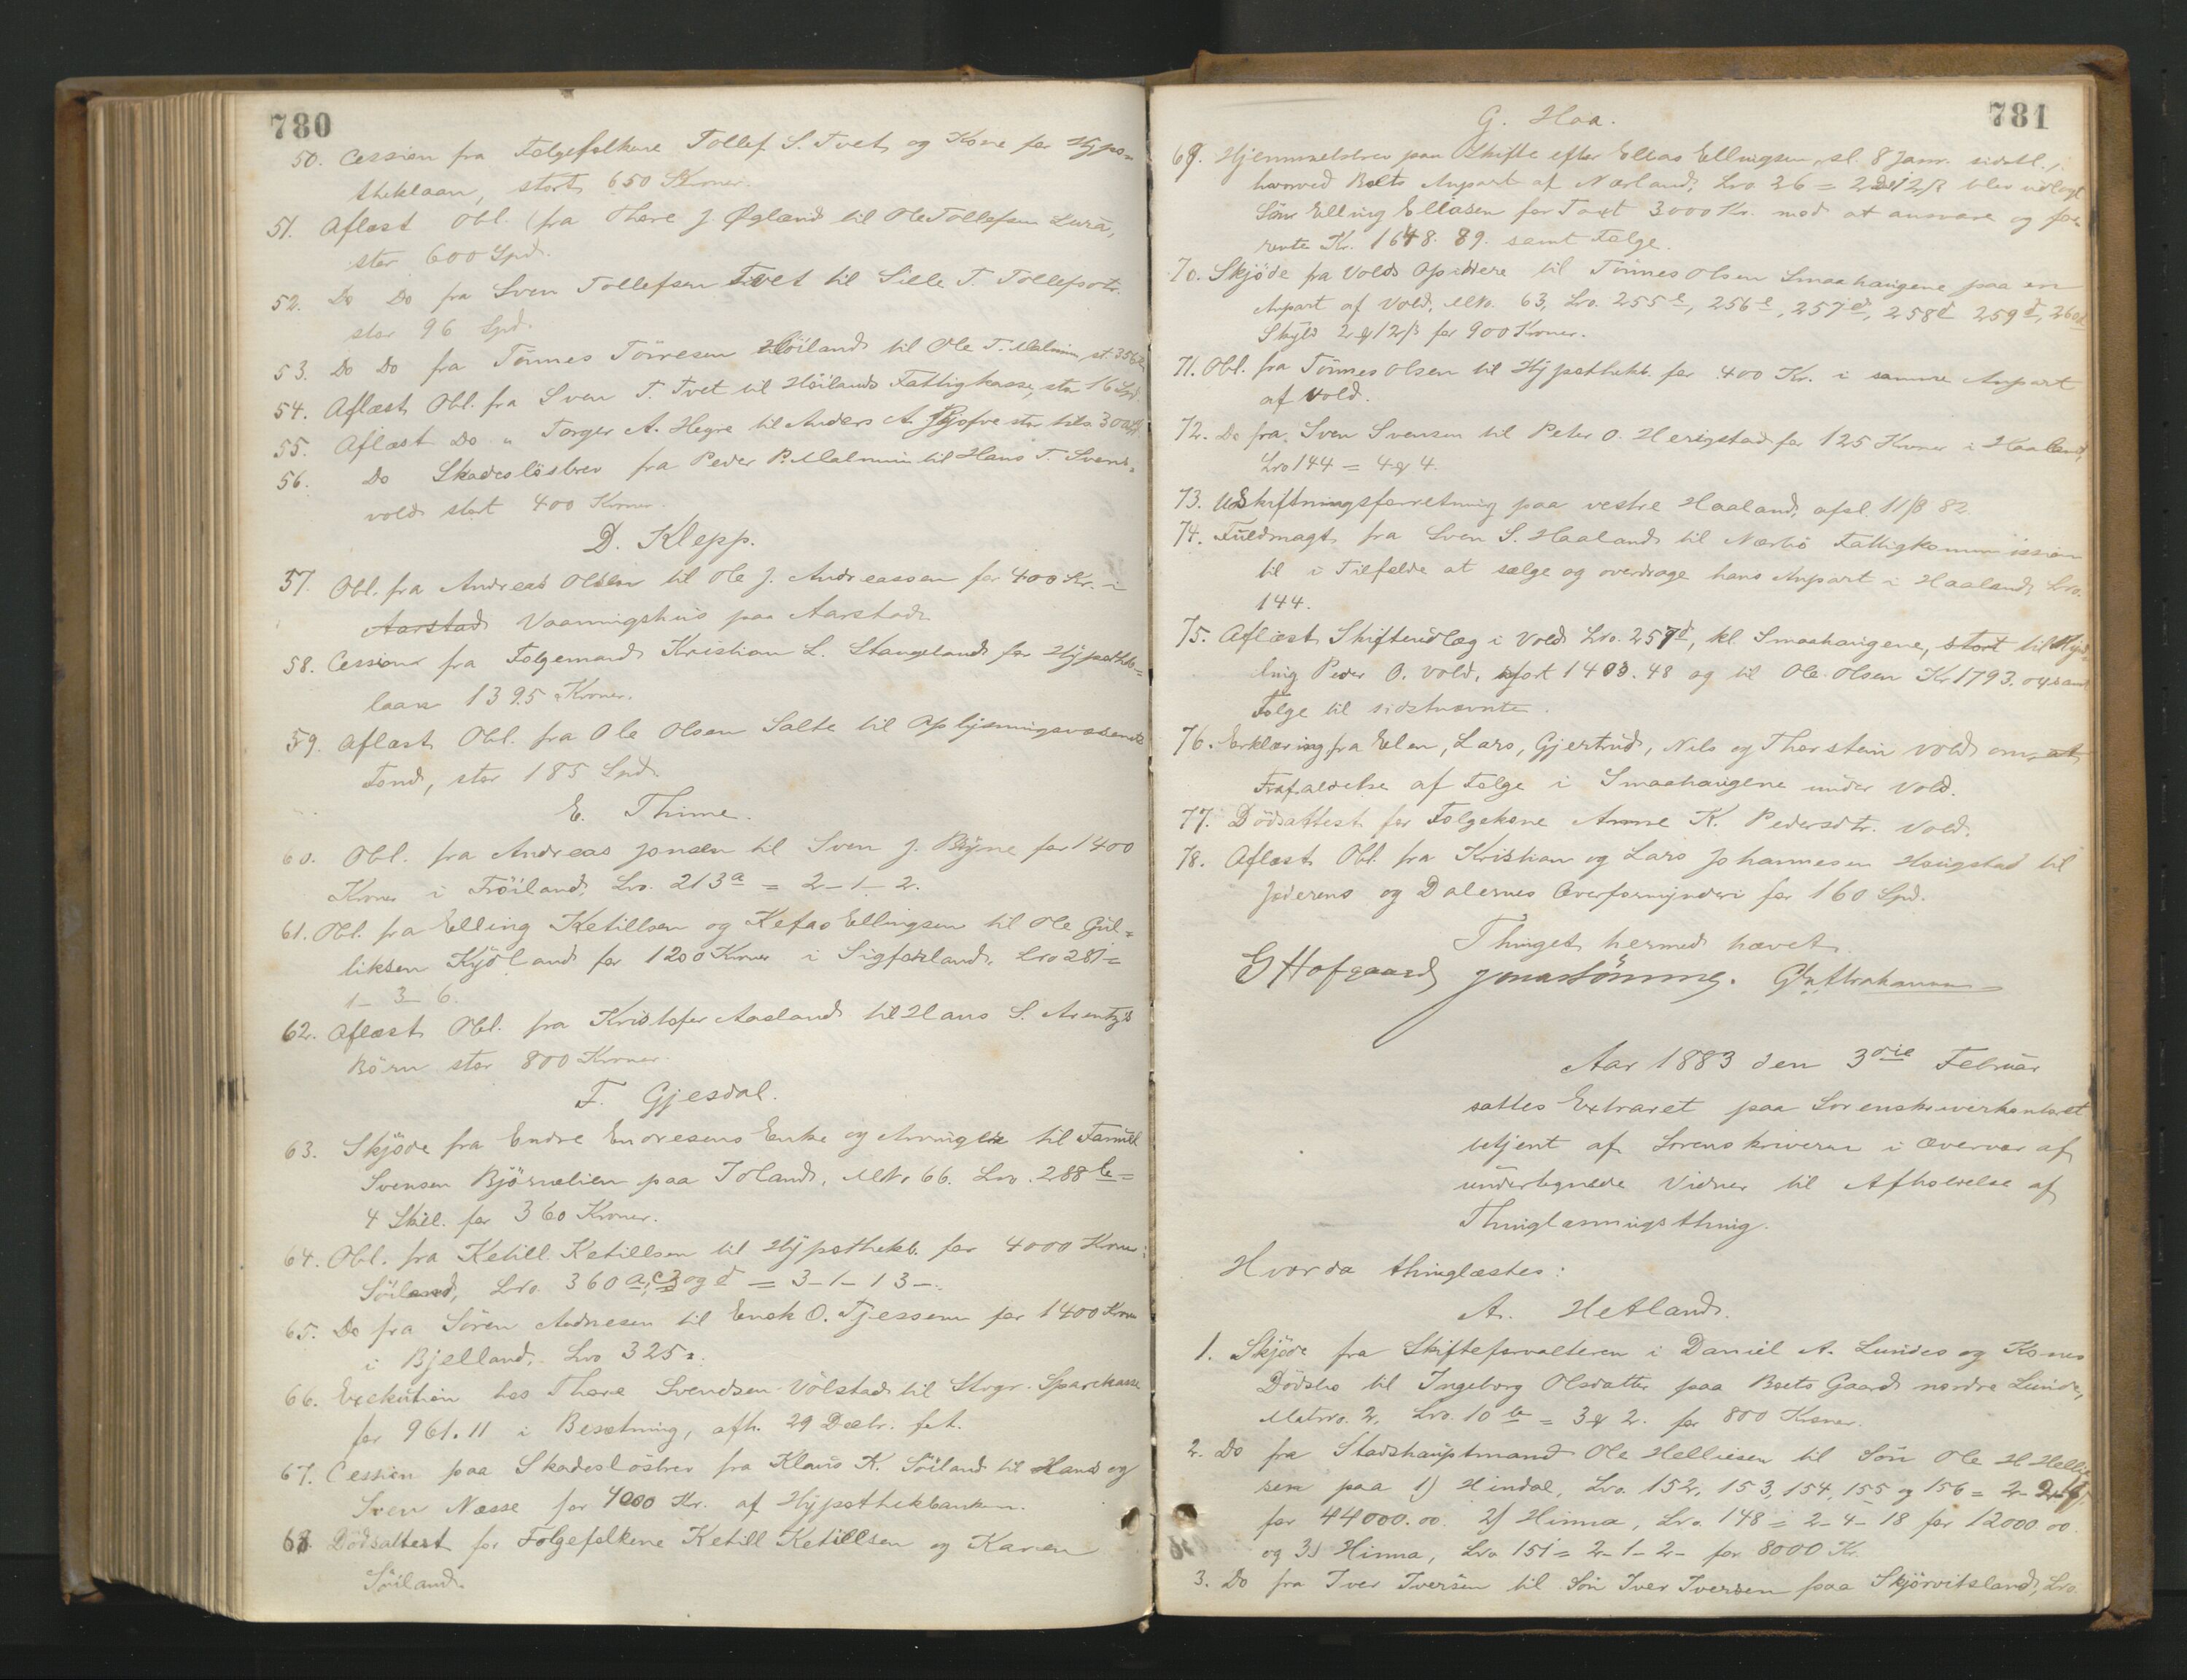 780
50. Cession fra Folgefolkene Tollef S. Tvet og Kone for Hypo-
theklaan, stort 650 Kroner.
51. Aflæst Obl. fra Thore J. Øgland til Ole Tollefsen Lura,
stor 600 Spd.
52. Do Do fra Sven Tollefsen Tvet til Sille T. Tollefsdtr.
stor 96 Spd.
53. Do Do fra Tönnes Törresen Höiland til Ole T. Malmin, st. 356
54. Aflæst Obl. fra Sven T. Tvet til Höilands Fattigkasse, stor 16 Spd.
55. Aflæst Do " Torger A. Hegre til Anders A. stor 300
56. Do Skadeslösbrev fra Peder P. Malmin til Hans T. Svens-
vold stort 400 Kroner.
D. Klepp.
57. Obl. fra Andreas Olsen til Ole J. Andreassen for 400 Kr. i
Aarstad Vaaningshus paa Aarstad
58. Cession fra Folgemand Kristian L. Stangeland for Hypothek-
laan 1395 Kroner.
59. Aflæst Obl. fra Ole Olsen Salte til Oplysningsvæsenets
Fond, stor 185 Spd.
E. Thime.
60. Obl. fra Andreas Jonsen til Sven J. Bryne for 1400
Kroner i Fröiland, Lvo. 213a = 2-1-2.
61. Obl. fra Elling Ketillsen og Kefas Ellingsen til Ole Gul-
liksen Kyöland for 1200 Kroner i Sigfasland, Lvo 281 =
1-3-6.
62. Aflæst Obl. fra Kristofer Aasland til Hans S. Arentz's
Börn stor 800 Kroner.
F. Gjesdal.
63. Skjöde fra Endre Endresens Enke og Arvinger til
Svensen Björnelien paa Joland, MNr. 66. Lvo. 288 b =
4 Skil. for 360 Kroner.
64. Obl. fra Ketill Ketillsen til Hypothekb. for 4000 Kroner i
Söiland, Lvo. 360 a, c og d = 3-1-13-.
65. Do fra Sören Andresen til Enok O. Tjessem for 1400 Kroner
i Bjelland, Lvo 325.
66. Exekution hos Thore Svendsen Völstad til Strgr. Sparekasse
for 961.11 i Besætning, afh. 29 Decbr. f.A.
67. Cession paa Skadeslösbrev fra Klaus K. Söiland til Hans og
Sven Næsse for 4000 Kr. af Hypothekbanken.
68. Dödsattest for Folgefolkene Ketill Ketillsen og Karen
Söiland.
781
G. Haa.
69. Hjemmelsbrev paa Skifte efter Elias Ellingsen, sl. 8 Janr. sidstl.,
hvorved Boets Anpart af Nærland, Lvo. 26 = 2 12 ß blev udlagt
Sön Elling Eliasen for Taxt 3000 Kr. mod at ansvare og for-
rente Kr. 1648.89. samt Folge.
70. Skjöde fra Volds Opsiddere til Tönnes Olsen Smaahaugene paa en
Anpart af Vold, MNo. 63, Lvo. 255 e, 256 e, 257 d, 258 d 259 d, 260 d
Skyld 2 12 ß for 900 Kroner.
71. Obl. fra Tönnes Olsen til Hypothekb. for 400 Kr. i samme Anpart
af Vold.
72. Do fra Sven Svensen til Peter O. Herigstad for 125 Kroner i Haaland,
Lvo 144 = 4 4.
73. Udskiftningsforretning paa vestre Haaland, afsl. 11/8 82.
74. Fuldmagt fra Sven S. Haaland til Nærbö Fattigkommission
til i Tilfælde at sælge og overdrage hans Anpart i Haaland, Lvo.
144.
75. Aflæst Skifteudlæg i Vold Lvo. 257 d, kl Smaahaugene, stort til Mynd-
ling Peder O. Vold, stort 1403.48 og til Ole Olsen Kr 1793.04 samt
Folge til sidstnævnte.
76. Erklæring fra Elen, Lars, Gjertrud, Nils og Thorstein Vold om at
Frafaldelse af Folge i Smaahaugene under Vold.
77. Dödsattest for Folgekone Anne K. Pedersdtr. Vold.
78. Aflæst Obl. fra Kristian og Lars Johannesen Haugstad til
Jæderens og Dalernes Overformynderi for 160 Spd.
Thinget hermed hævet.
G Hofgaard Jonas Gbr. Abrahamsen
Aar 1883 den 3die Februar
sattes Extraret paa Sorenskriverkontoret
betjent af Sorenskriveren i Overvær af
undertegnede Vidner til Afholdelse af
Thinglæsningsthing.
Hvorda thinglæstes:
A. Hetland.
1. Skjöde fra Skifteforvalteren i Daniel A. Lundes og Kones
Dödsbo til Ingeborg Olsdatter paa Boets Gaard nordre Lunde,
Matrno. 2, Lvo. 10 b = 3 2. for 800 Kroner.
2. Do fra Stadshauptmand Ole Helliesen til Sön Ole H Hellie
sen paa 1) Hindal, Lvo. 152, 153, 154, 155 og 156 = 2-
for 44000.00. 2) Hinna, Lvo. 148 = 2-4-18 for 12000.00.
og 3) Hinna, Lvo 151 = 2-1-2- for 8000 Kr.
3. Do fra Iver Iversen til Sön Iver Iversen paa Skjörvitsland, Lvo.